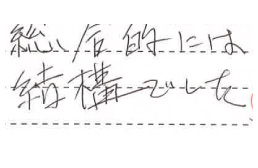 総合的には
結構でした